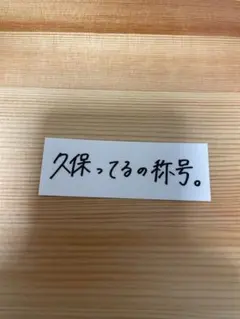 久保ってるの称号。